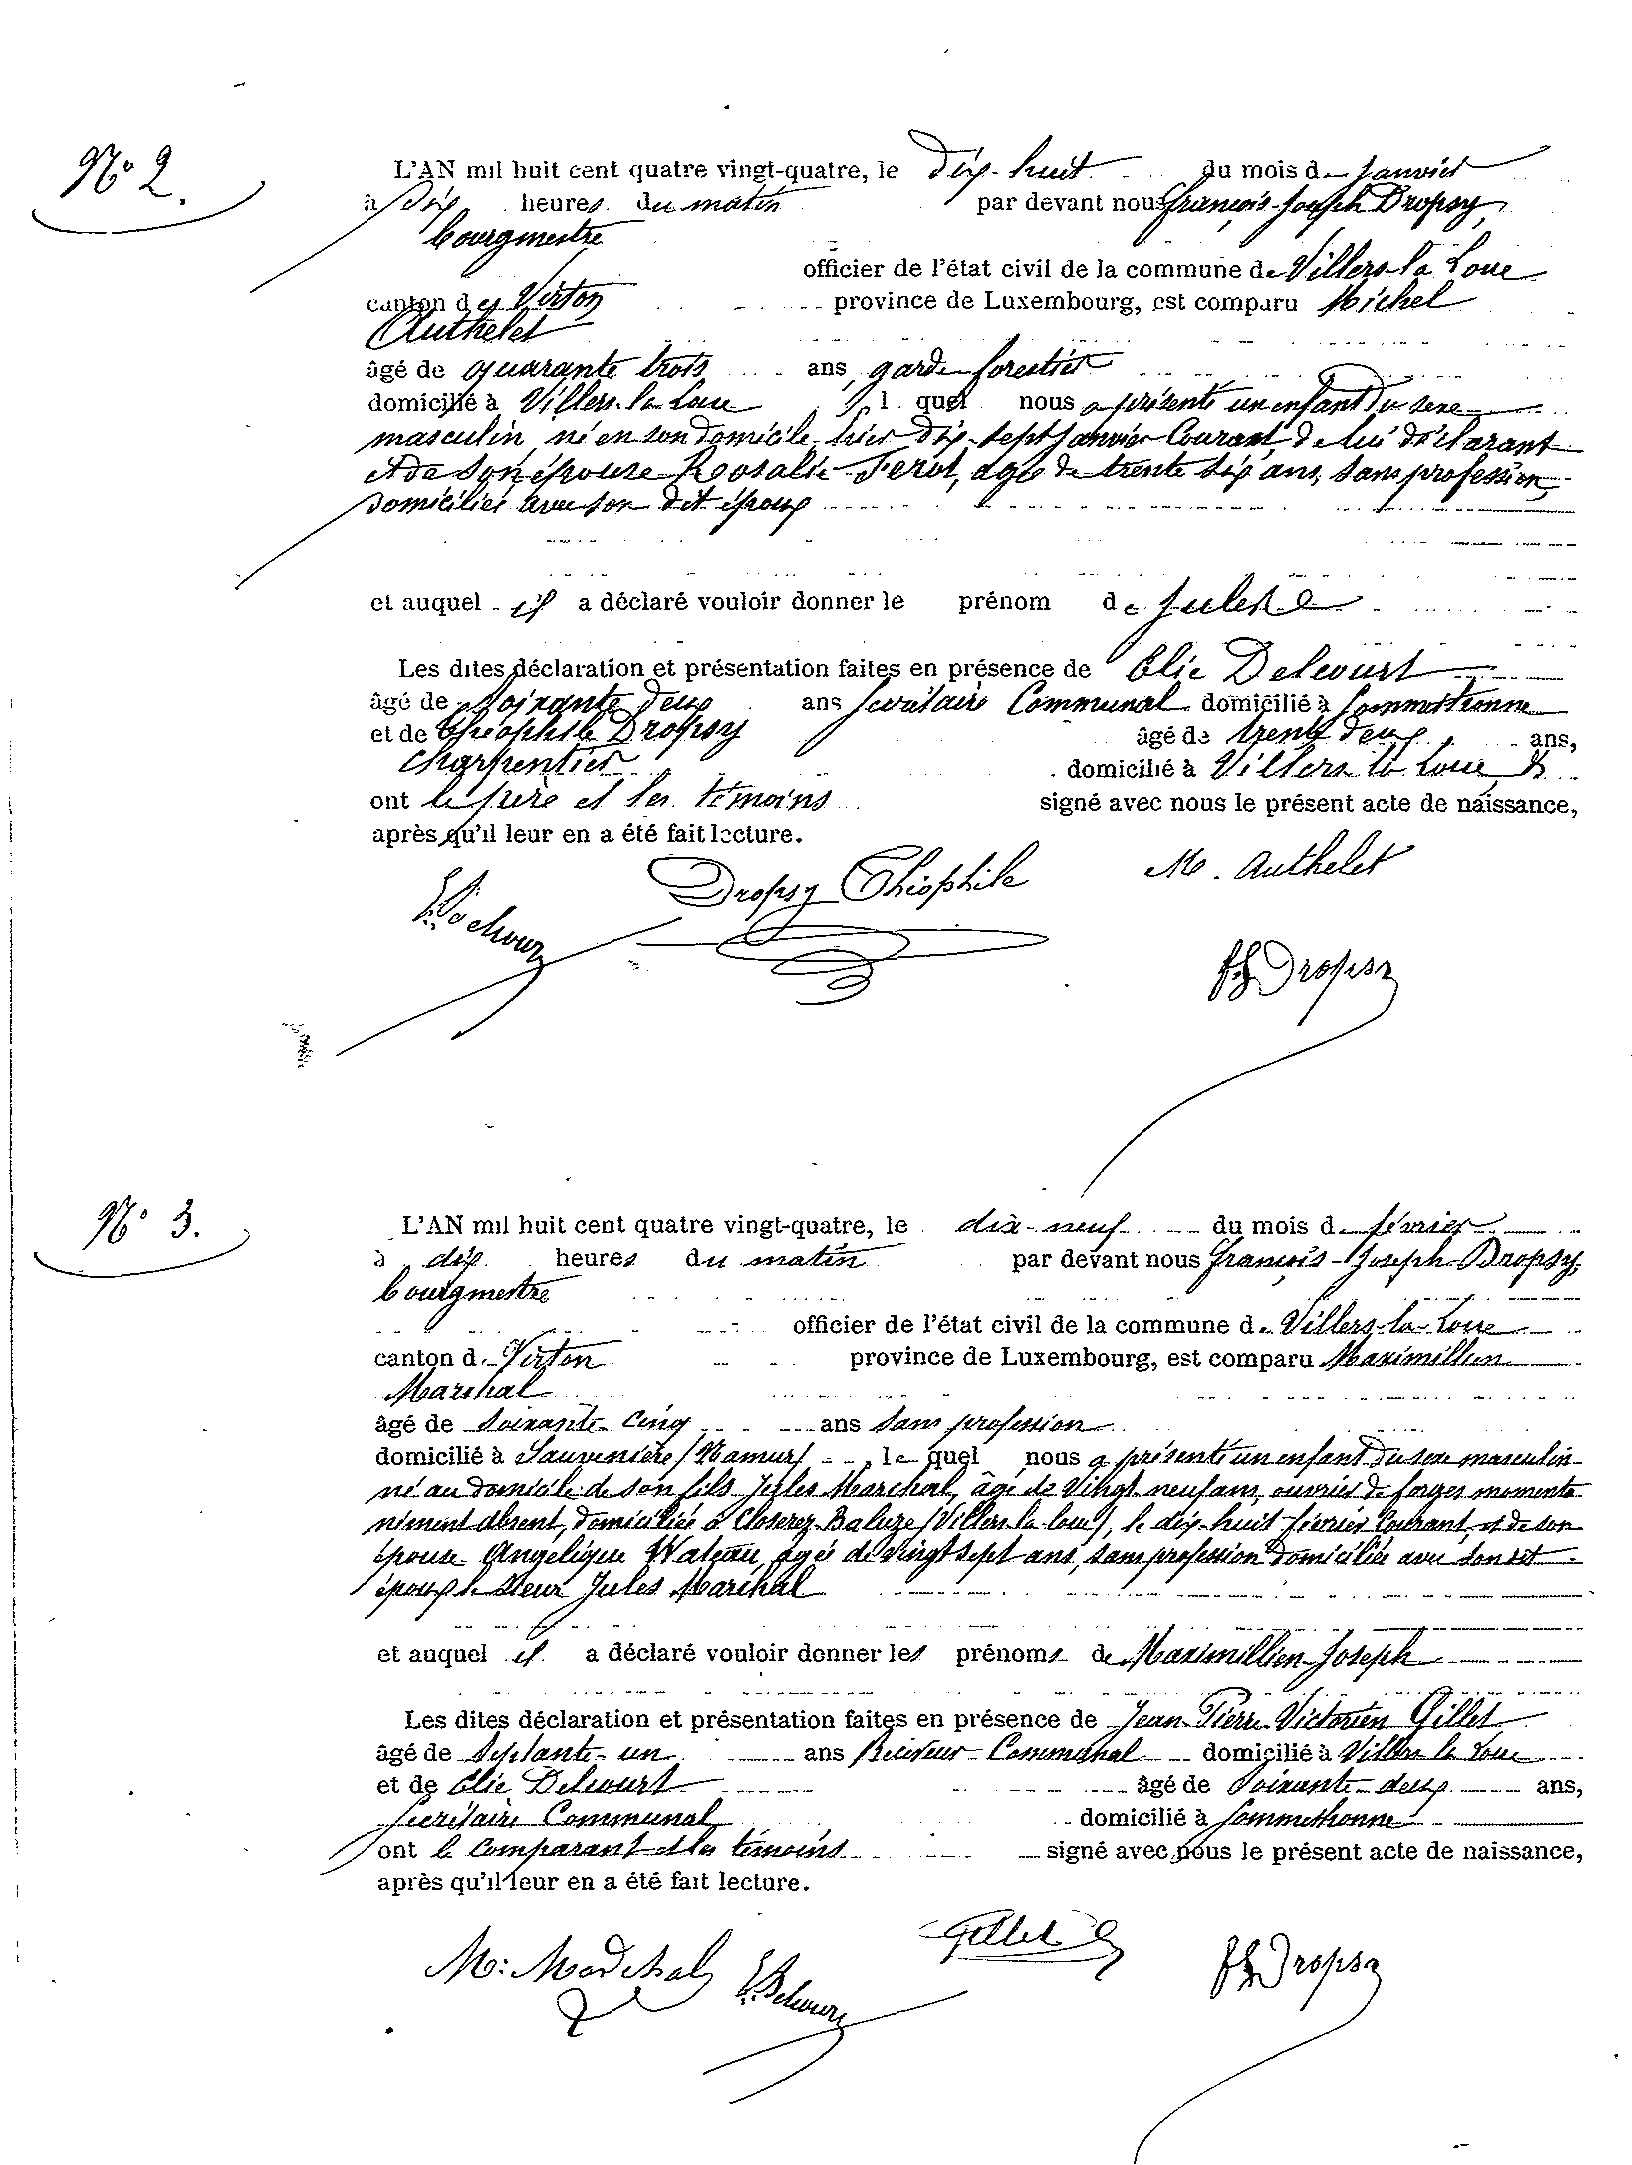 N° 2.
L'AN mil huit cent quatre vingt-quatre, le dix-huit du mois de janvier
à dix heures du matin par devant nous François-Joseph Dropsy,
bourgmestre
officier de l'état civil de la commune de Villers-la-Loue
canton de Virton province de Luxembourg, est comparu Michel
Authelet
âgé de quarante trois ans, garde forestier
domicilié à Villers-la-Loue, lequel nous a présenté un enfant du sexe
masculin, né en son domicile, hier dix-sept janvier courant, de lui déclarant
et de son épouse Rosalie Ferot, agée de trente six ans, sans profession,
domiciliée avec son dit époux
et auquel il a déclaré vouloir donner le prénom de Jules
Les dites déclaration et présentation faites en présence de Elie Delcourt
âgé de soixante deux ans Secrétaire Communal domicilié à Sommethonne
et de Théophile Dropsy âgé de trente deux ans,
charpentier domicilié à Villers la Loue &
ont le père et les témoins signé avec nous le présent acte de naissance,
après qu'il leur en a été fait lecture.
E. Delcourt Dropsy Théophile M. Authelet
FJ Dropsy
N° 3.
L'AN mil huit cent quatre vingt-quatre, le dix-neuf du mois de février
à dix heures du matin par devant nous François-Joseph Dropsy,
bourgmestre
officier de l'état civil de la commune de Villers-la-Loue
canton de Virton province de Luxembourg, est comparu Maximilien
Maréchal
âgé de soixante-cinq ans sans profession
domicilié à Sauvenière (Namur), lequel nous a présenté un enfant du sexe masculin
né au domicile de son fils Jules Maréchal, âgé de vingt neuf ans, ouvrier de forges momenta
nément absent, domicilié à Closerez-Baleze (Villers-la-loue), le dix-huit février courant, et de son
épouse Angélique Wateau, agée de vingt sept ans, sans profession domiciliée avec son dit
époux le sieur Jules Maréchal
et auquel il a déclaré vouloir donner les prénoms de Maximillien-Joseph
Les dites déclaration et présentation faites en présence de Jean-Pierre-Victorien Gillet
âgé de septante-un ans Receveur Communal domicilié à Villers la Loue
et de Elie Delcourt âgé de soixante-deux ans,
Secrétaire Communal domicilié à Sommethonne
ont le comparant et les témoins signé avec nous le présent acte de naissance,
après qu'il leur en a été fait lecture.
M: Maréchal E. Delcourt Gillet FJ Dropsy